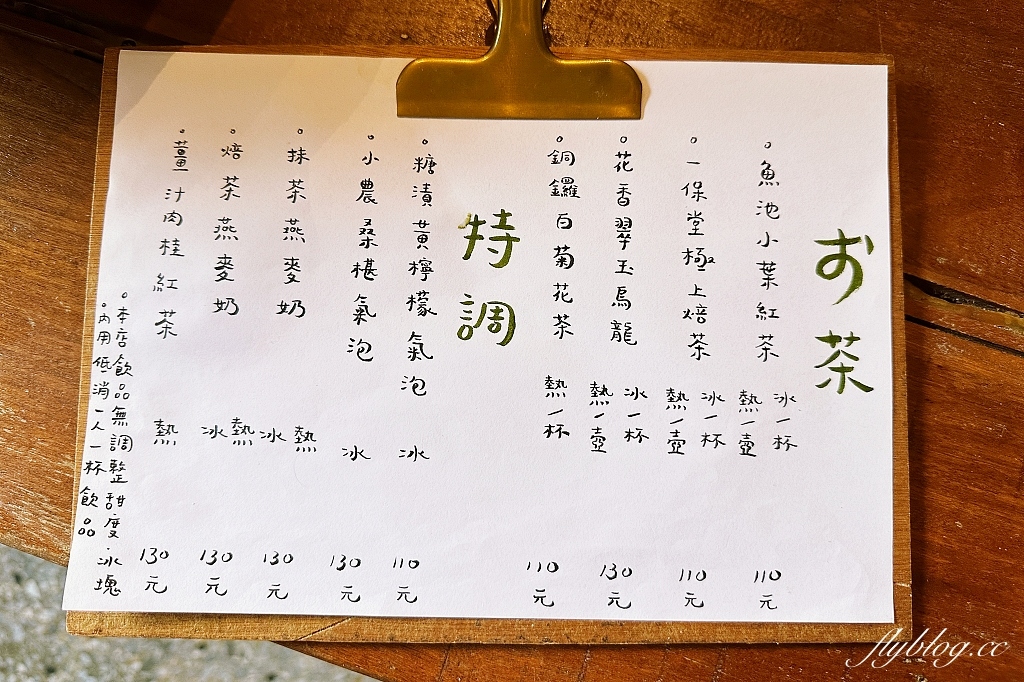 お茶
魚池小葉紅茶 冰一杯 熱一壺 110元
一保堂極上焙茶 冰一杯 熱一壺 110元
花香翠玉烏龍 冰一杯 熱一壺 130元
銅鑼白菊花茶 熱一杯 110元
特調
糖漬黃檸檬氣泡 冰 110元
小農桑椹氣泡 冰 130元
抹茶燕麥奶 熱 冰 130元
焙茶燕麥奶 熱 冰 130元
薑汁肉桂紅茶 熱 130元
本店飲品無調整甜度、冰塊
內用低消一人一杯飲品
flyblog.cc